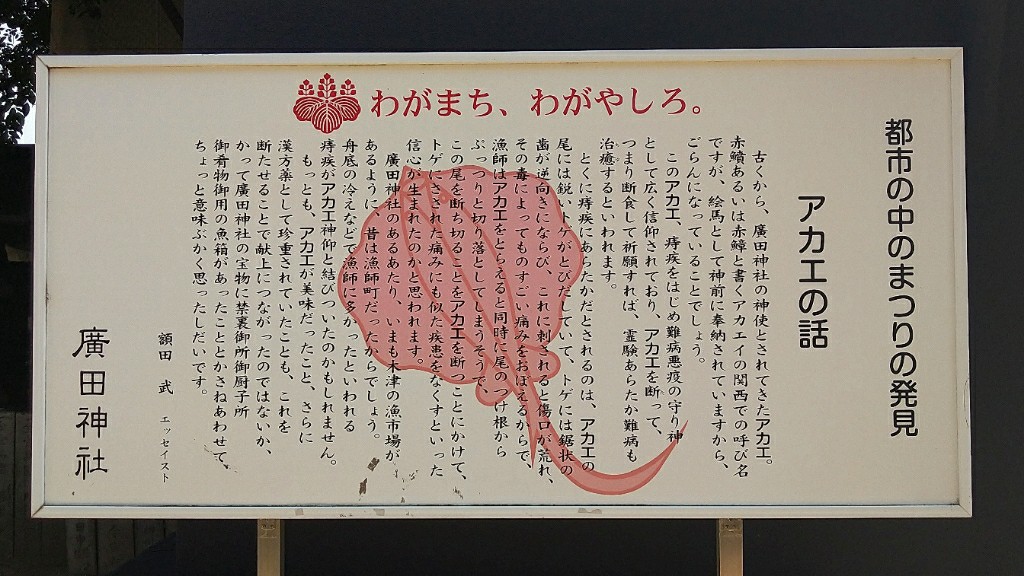 わがまち、わがやしろ。
都市の中のまつりの発見
アカエの話
古くから、廣田神社の神使とされてきたアカエ。
赤鱝あるいは赤鱏と書くアカエイの関西での呼び名
ですが、絵馬として神前に奉納されていますから、
ごらんになっていることでしょう。
このアカエ、痔疾をはじめ難病悪疫の守り神
として広く信仰されており、アカエを断って、
つまり断食して祈願すれば、霊験あらたか難病も
治癒するといわれます。
とくに痔疾にあらたかだとされるのは、アカエの
尾には鋭いトゲがとびだしていて、トゲには鋸状の
歯が逆向きにならび、これに刺されると傷口が荒れ、
その毒によってものすごい痛みをおぼえるからで、
漁師はアカエをとらえると同時に尾のつけ根から
ぶっつりと切り落としてしまうそうで、
この尾を断ち切ることをアカエを断つことにかけて、
トゲにさされた痛みにも似た疾患をなくすといった
信心が生まれたのかと思われます。
廣田神社のあるあたり、いまも木津の漁市場が
あるように、昔は漁師町だったからでしょう。
舟底の冷えなどで漁師に多かったといわれる
痔疾がアカエ神仰と結びついたのかもしれません。
もっとも、アカエが美味だったこと、さらに
漢方薬として珍重されていたことも、これを
断たせることで献上につながったのではないか、
かって廣田神社の宝物に禁裏御所御厨子所
御肴物御用の魚箱があったこととかさねあわせて、
ちょっと意味ぶかく思ったしだいです。
額田 武 エッセイスト
廣田神社